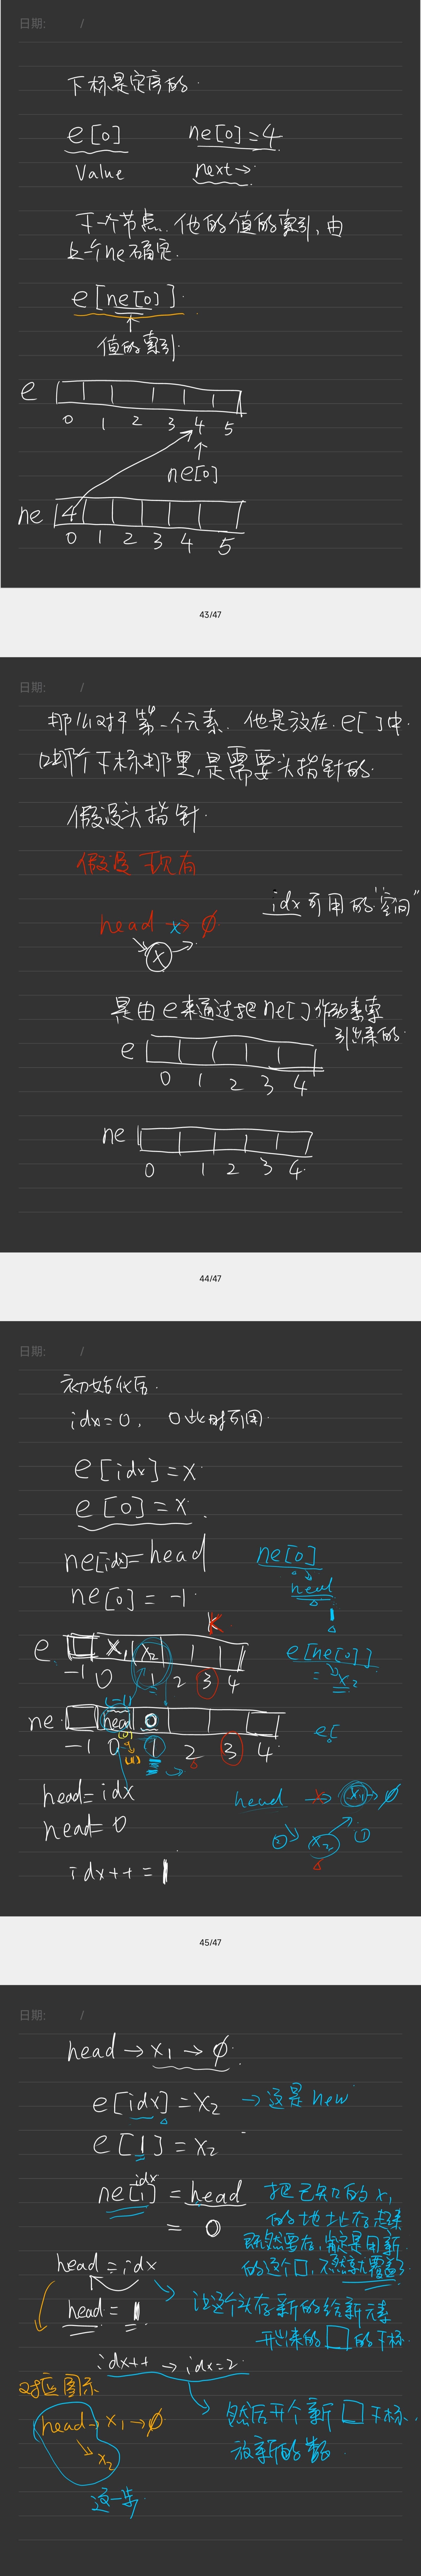 日期: /
下标是定序的.
e[0] ne[0]=4
Value next→
下一个节点.他的值的索引,由
上一个ne确定.
e[ne[0]].
↑
值的索引.
e
0 1 2 3 4 5
↑
ne[0]
ne 4
0 1 2 3 4 5
43/47
日期: /
那么对于第一个元素.他是放在.e[]中.
哪个下标那里,是需要头指针的.
假设头指针.
假设 现有
idx可用的"空间"
head x→ ∅
x →
是由e来通过把ne[]作为索
引出来的.
e
0 1 2 3 4
ne
0 1 2 3 4.
44/47
日期: /
初始化后.
idx=0, 0此时可用.
e[idx]=x.
e[0]=x.
ne[idx]=head
ne[0]=-1.
ne[0]
head
1
K
e x₁ x₂
-1 0 1 2 3 4
e[ne[0]]
= x₂
(-1)
ne head 0
-1 0 1 2 3 4
e[
head=idx
head=0
idx++=1
head → x₁ → ∅
② x₂ ①
45/47
日期: /
head → x₁ → ∅.
e[idx]=x₂ → 这是 new
e[1]=x₂
idx
ne[1]=head
= 0
把已知的x₁
的地址存起来
既然要存,肯定是用新
的这个口,不然就覆盖了
head=idx
head=1
让这个头存新的给新元素
开出来的口的下标.
idx++ → idx=2.
然后开个新口下标,
放新的数
对应图示
head → x₁ → ∅
x₂
这一步